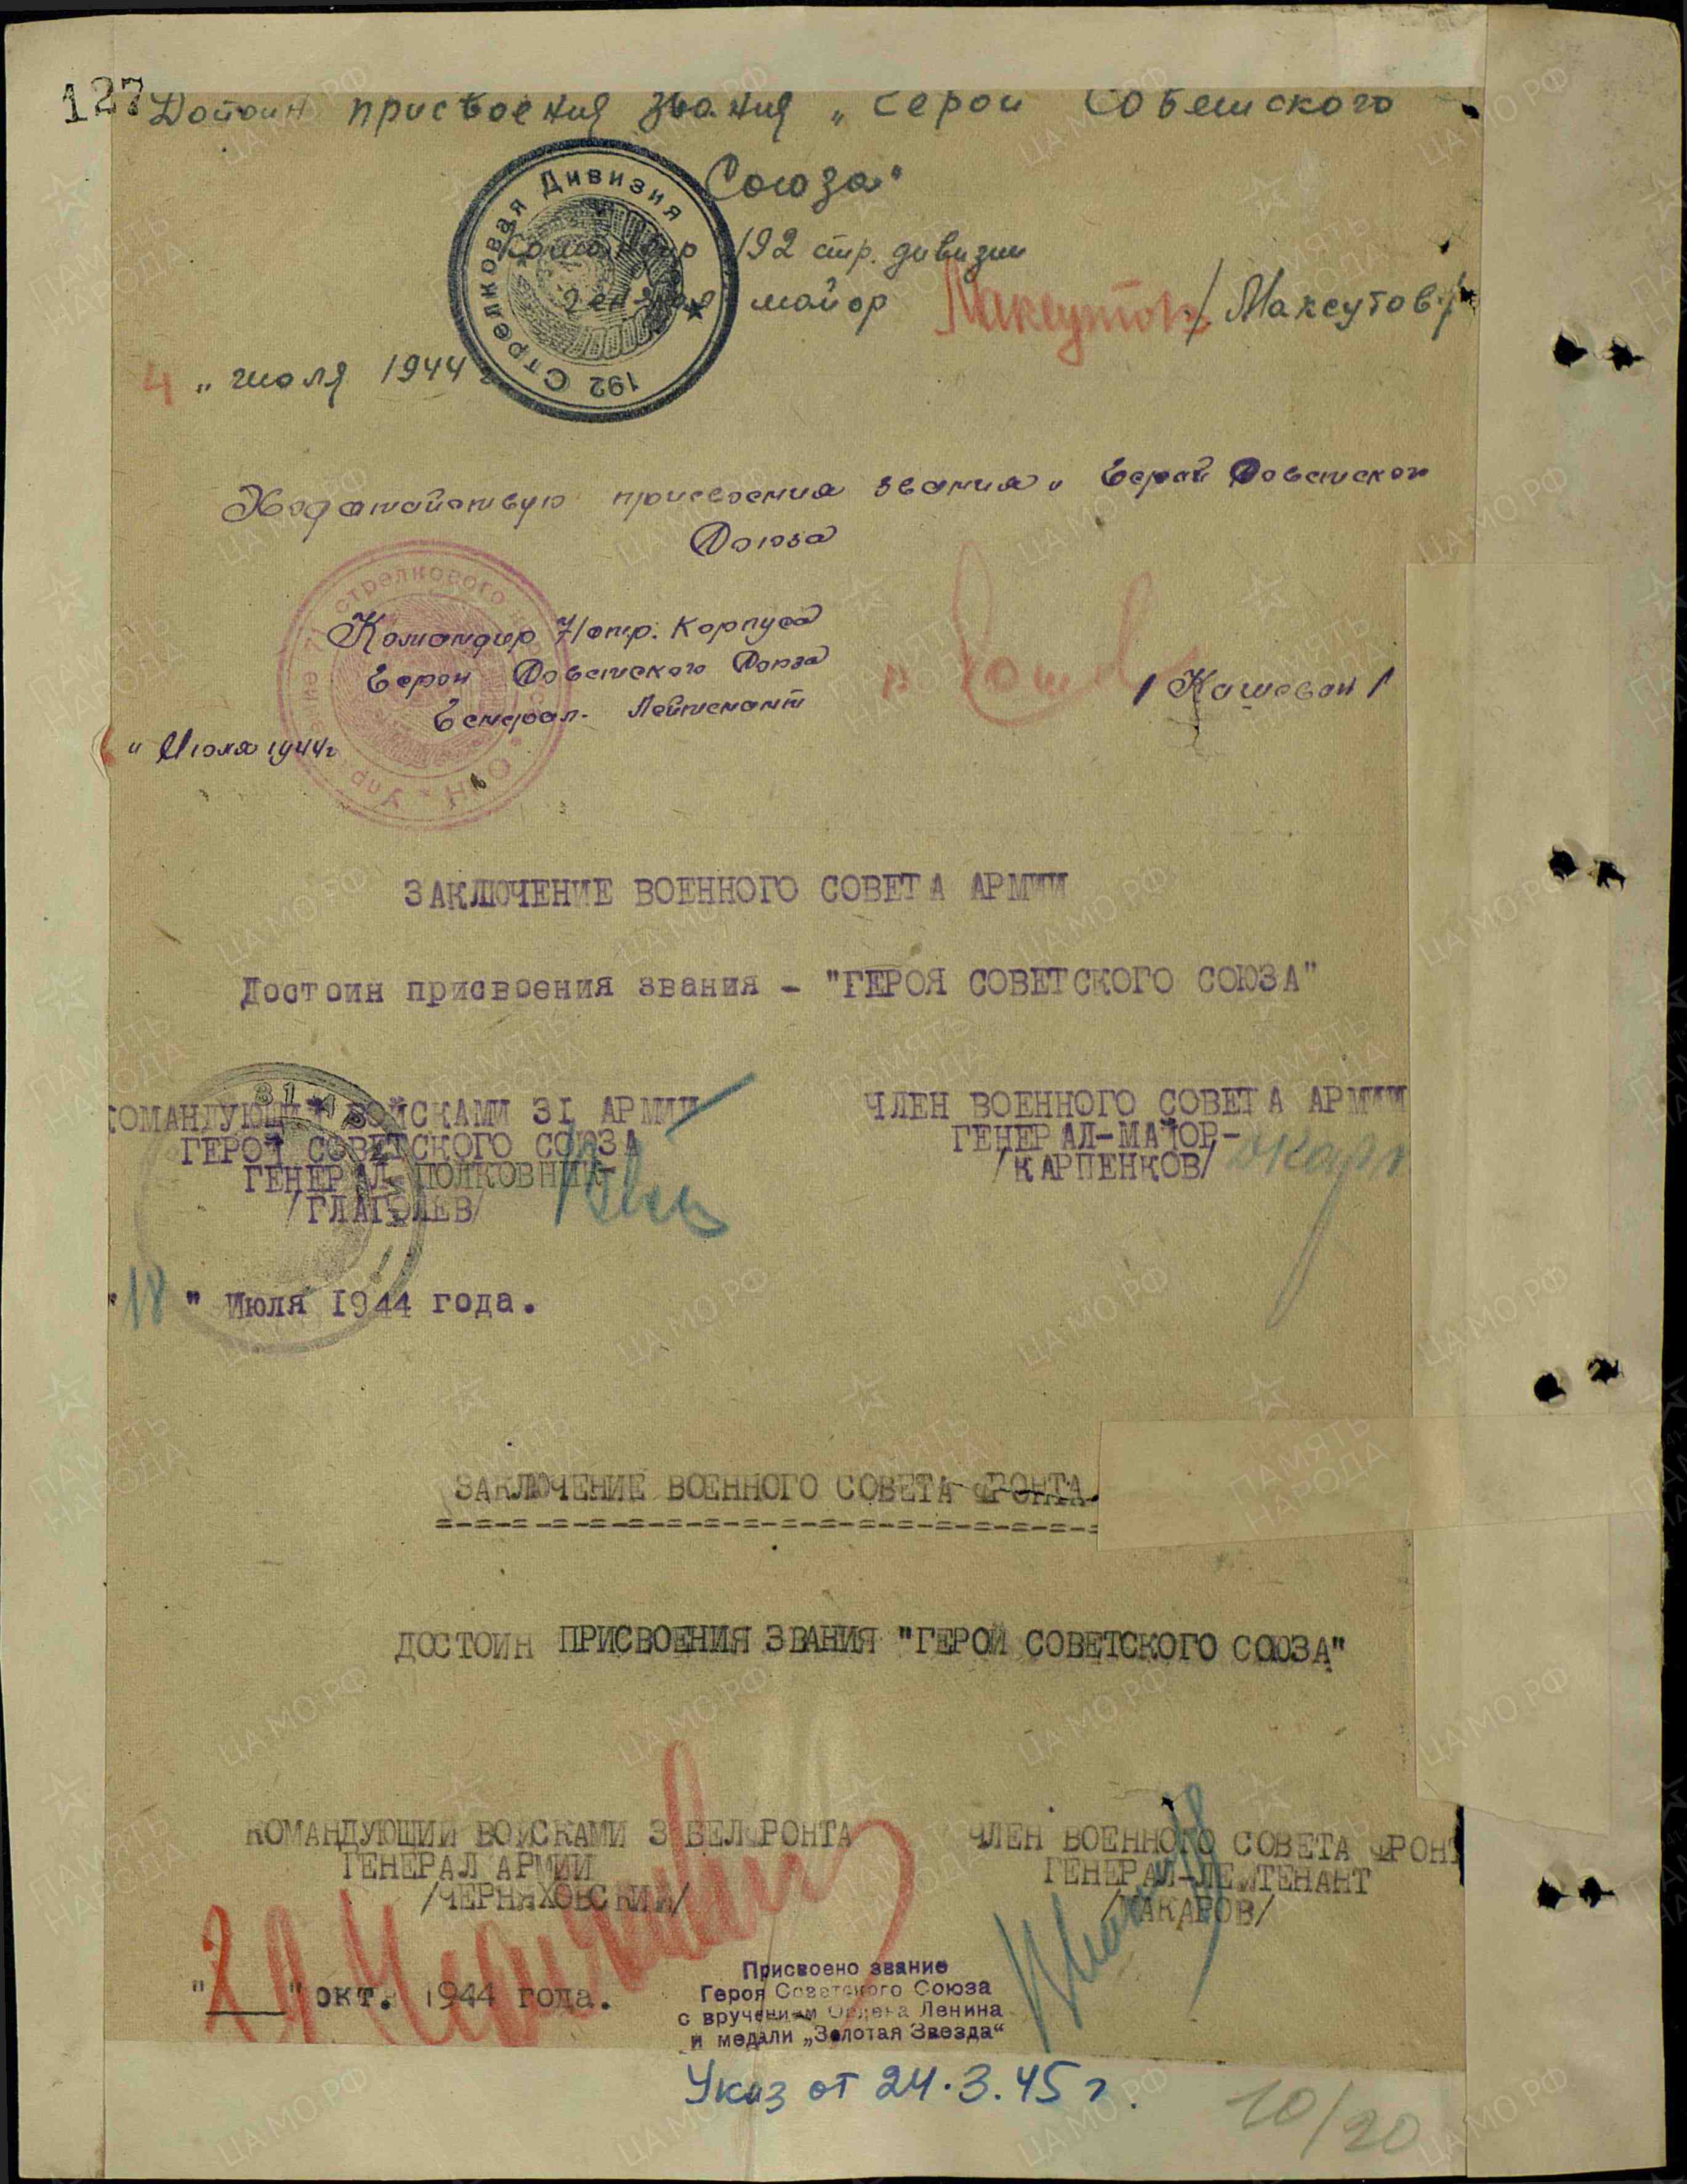 127
Достоин присвоения звания „Герой Советского
Союза"
192 Стрелковая Дивизия
Командир 192 стр. дивизии
Генерал майор Максутов /Максутов/
4 „ июля 1944 г
Ходатайствую присвоения звания „ Герой Советского
Союза
Командир 71 стр. Корпуса
Герой Советского Союза
Генерал-Лейтенант /Кошевой/
" Июля 1944г
ЗАКЛЮЧЕНИЕ ВОЕННОГО СОВЕТА АРМИИ
Достоин присвоения звания - "ГЕРОЯ СОВЕТСКОГО СОЮЗА"
КОМАНДУЮЩИЙ ВОЙСКАМИ 31 АРМИИ
ГЕРОЙ СОВЕТСКОГО СОЮЗА
ГЕНЕРАЛ-ПОЛКОВНИК-
/ГЛАГОЛЕВ/
ЧЛЕН ВОЕННОГО СОВЕТА АРМИИ
ГЕНЕРАЛ-МАЙОР-
/КАРПЕНКОВ/
"18" Июля 1944 года.
ЗАКЛЮЧЕНИЕ ВОЕННОГО СОВЕТА ФРОНТА
ДОСТОИН ПРИСВОЕНИЯ ЗВАНИЯ "ГЕРОЙ СОВЕТСКОГО СОЮЗА"
КОМАНДУЮЩИЙ ВОЙСКАМИ 3 БЕЛФРОНТА
ГЕНЕРАЛ АРМИИ
/ЧЕРНЯХОВСКИЙ/
ЧЛЕН ВОЕННОГО СОВЕТА ФРОНТ
ГЕНЕРАЛ-ЛЕЙТЕНАНТ
/МАКАРОВ/
"__" окт. 1944 года.
Присвоено звание
Героя Советского Союза
с вручением Ордена Ленина
и медали „Золотая Звезда"
Указ от 24.3.45 г.
10/20
ПАМЯТЬ НАРОДА
ЦА МО РФ